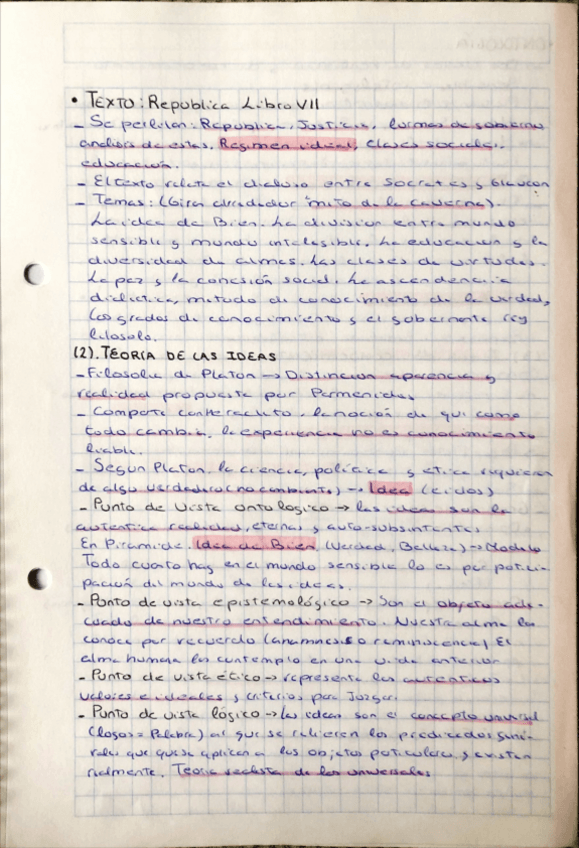 • TEXTO: Republica Libro VII
- Se perfilan: Republica, Justicia, formas de gobierno
analisis de estas, Regimen ideal, clases sociales,
educación.
- El texto relata el dialogo entre Socrates y Glaucon
- Temas: (Gira alrededor "mito de la caverna).
La idea de Bien. La division entre mundo
sensible y mundo inteligible. La educacion y la
diversidad de almas. Las clases de virtudes.
La paz y la cohesión social. La ascendencia
dialectica, metodo de conocimiento de la verdad,
los grados de conocimiento y el gobernante rey
filosofo.
(2). TEORÍA DE LAS IDEAS
- Filosofia de Platon → Distincion apariencia y
realidad propuesta por Parmenides
- Comparte con Heraclito, la noción de que como
todo cambia, la experiencia no es conocimiento
fiable.
- Segun Platon, la ciencia, politica y etica requieren
de algo verdadero (no cambiante) → Idea (eidos)
- Punto de vista ontologico → las ideas son la
autentica realidad, eternas y auto-subsistentes
En Piramide. Idea de Bien, (Verdad, Belleza) → Modelo
Todo cuanto hay en el mundo sensible lo es por partici-
pación del mundo de las ideas.
- Punto de vista epistemológico → Son el objeto ade-
cuado de nuestro entendimiento. Nuestra alma las
conoce por recuerdo (anamnesis o reminiscencia) El
alma humana las contemplo en una vida anterior
- Punto de vista ético → representa los autenticos
valores e ideales y criterios para Juzgar.
- Punto de vista lógico → Las ideas son el concepto universal
(logos = Palabra) al que se refieren los predicados gene-
rales que se aplican a los objetos particulares y existen
realmente. Teoria realista de los universales